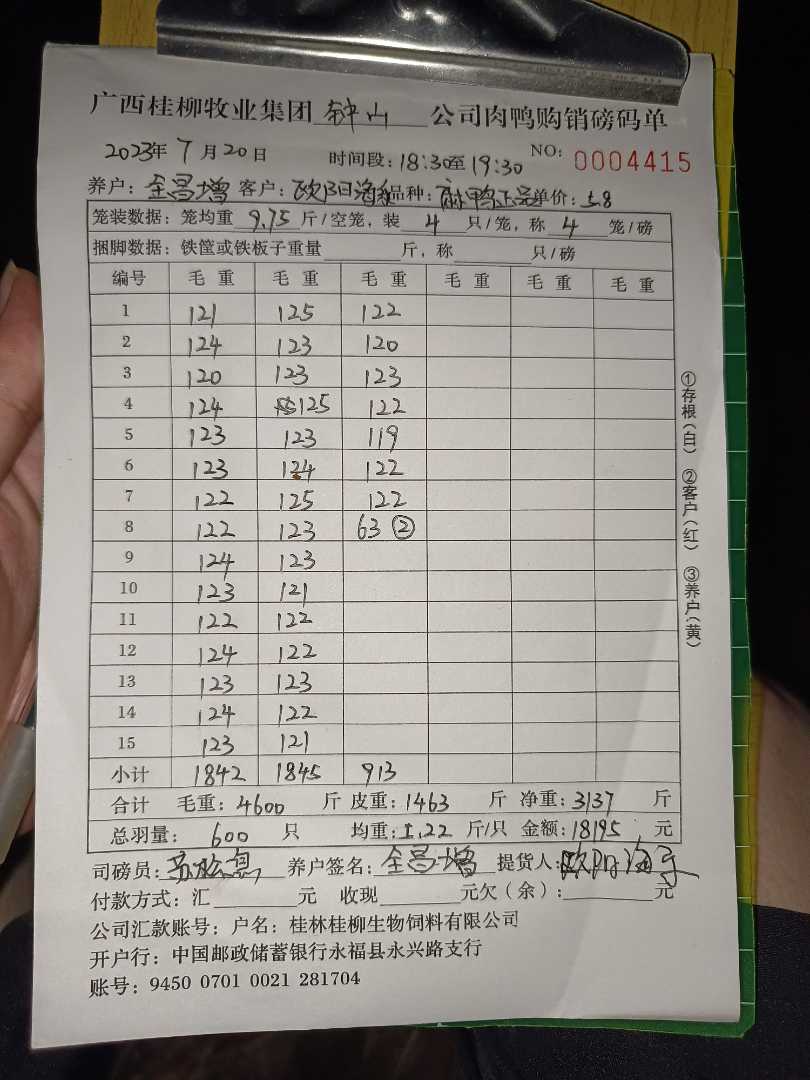 广西桂柳牧业集团 钟山 公司肉鸭购销磅码单
2023年 7月20日 时间段：18:30至19:30 NO: 0004415
养户：全昌增 客户：欧阳海 品种：麻鸭正品 单价：5.8
笼装数据：笼均重 9.75 斤/空笼，装 4 只/笼，称 4 笼/磅
捆脚数据：铁筐或铁板子重量 斤，称 只/磅
编号 毛重 毛重 毛重 毛重 毛重 毛重
1 121 125 122
2 124 123 120
3 120 123 123
4 124 125 122
5 123 123 119
6 123 124 122
7 122 125 122
8 122 123 63 ②
9 124 123
10 123 121
11 122 122
12 124 122
13 123 123
14 124 122
15 123 121
小计 1842 1845 913
合计 毛重：4600 斤 皮重：1463 斤 净重：3137 斤
总羽量： 600 只 均重：5.22 斤/只 金额：18195 元
司磅员： 养户签名：全昌增 提货人：欧阳海
付款方式：汇 元 收现 元欠（余）： 元
公司汇款账号：户名：桂林桂柳生物饲料有限公司
开户行：中国邮政储蓄银行永福县永兴路支行
账号：9450 0701 0021 281704
①存根（白） ②客户（红） ③养户（黄）